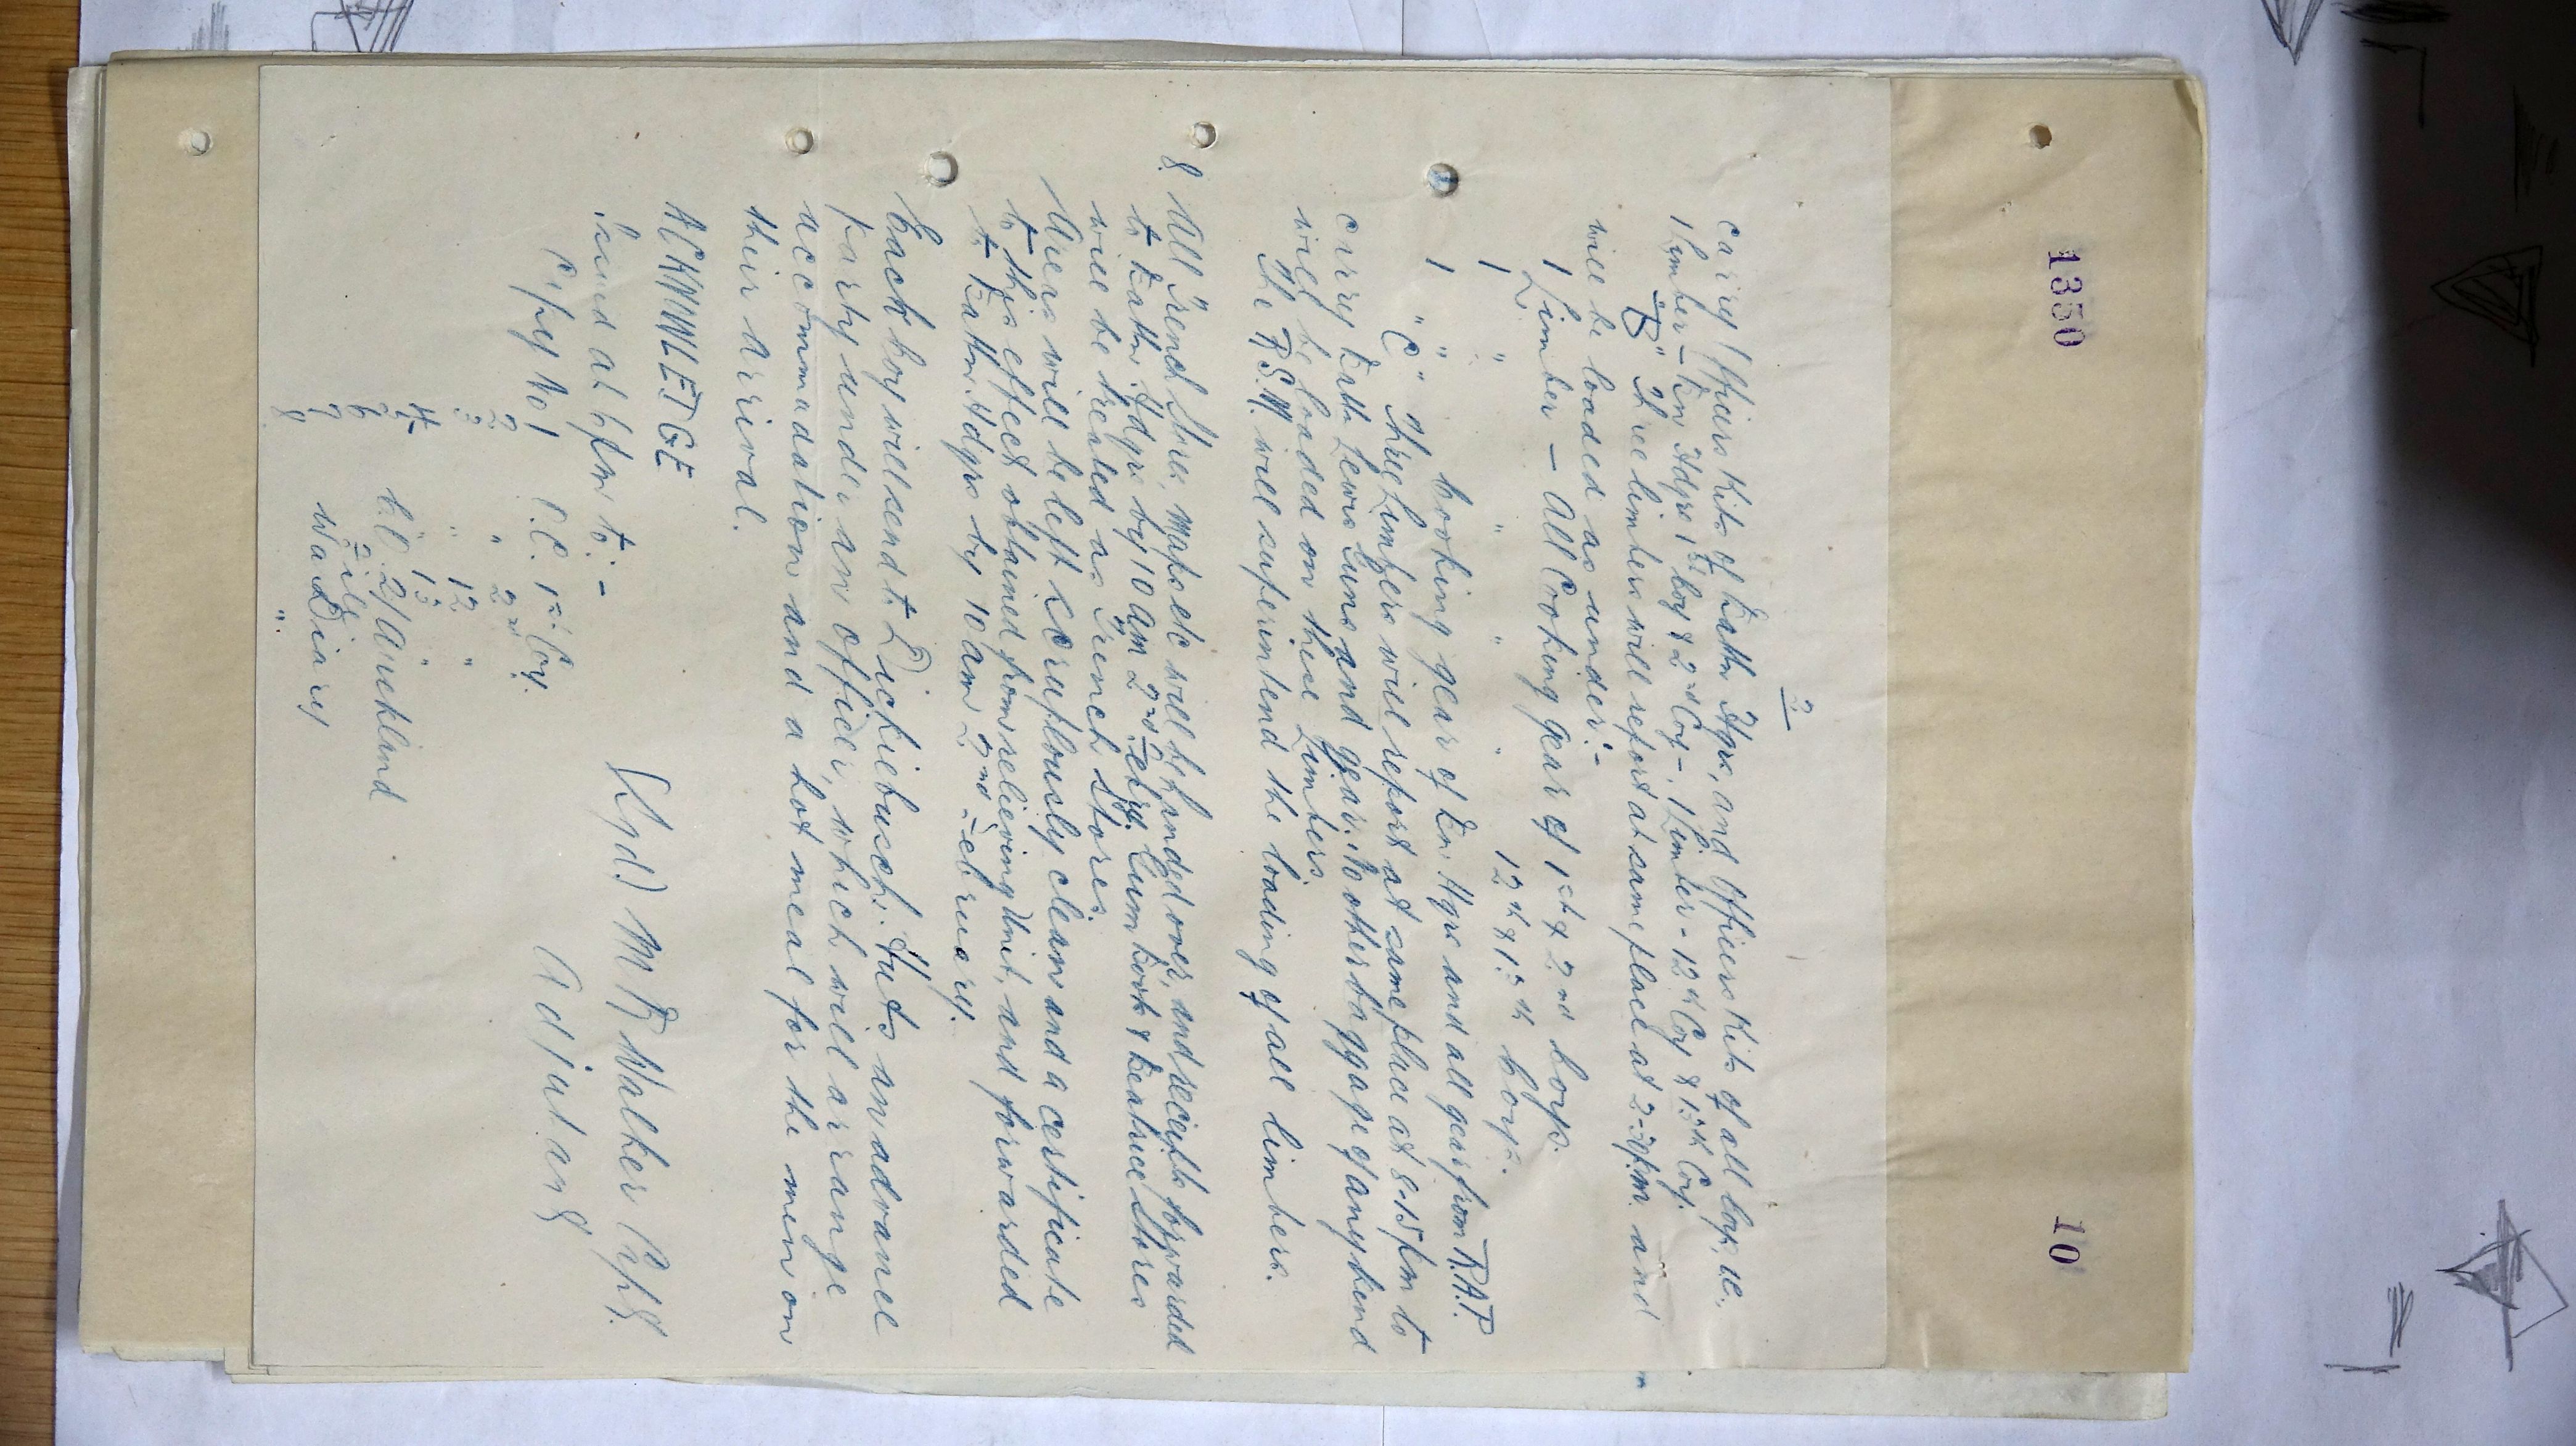 1350
10
2
carry Officers Kits of Battn Hqrs, and Officers Kits of all Coys, ie,
1 Limber - Bn Hdqrs 1st Coy & 2nd Coy - 1 Limber - 12th Coy & 13th Coy.
"B" Three limbers will report at same place at 2-30pm. and
will be loaded as under:-
1 Limber - All Cooking gear of 1st & 2nd Coys.
1 " " " " 12th & 13th Coys.
1 " Cooking gear of Bn. Hqrs and all gear from R.A.P.
"C" Three Limbers will report at same place at 8-15pm to
carry Battn Lewis Guns and gear. No other baggage of any kind
will be loaded on these Limbers
The R.S.M. will superintend the loading of all limbers.
8. All Trench Stores, Maps etc will be handed over, and receipts forwarded
to Battn. Hdqrs by 10am 2nd Febry. Gum Boots & Beatrice Stores
will be treated as Trench Stores.
Areas will be left scrupulously clean and a certificate
to this effect obtained from relieving Unit, and forwarded
to Battn. Hdqrs by 10am 2nd February.
Each Coy will send to Dickiebusch Huts an advance
party under an officer, which will arrange
accommodation and a hot meal for the men on
their arrival.
ACKNOWLEDGE
Issued at 6pm to:-
(Sgd) M B Walker Capt.
Adjutant
Copy No 1 O.C. 1st Coy.
2 " 2nd "
3 " 12 "
4 " 13 "
5 C.O. 2/Auckland
6 File
7 War Diary
8 "